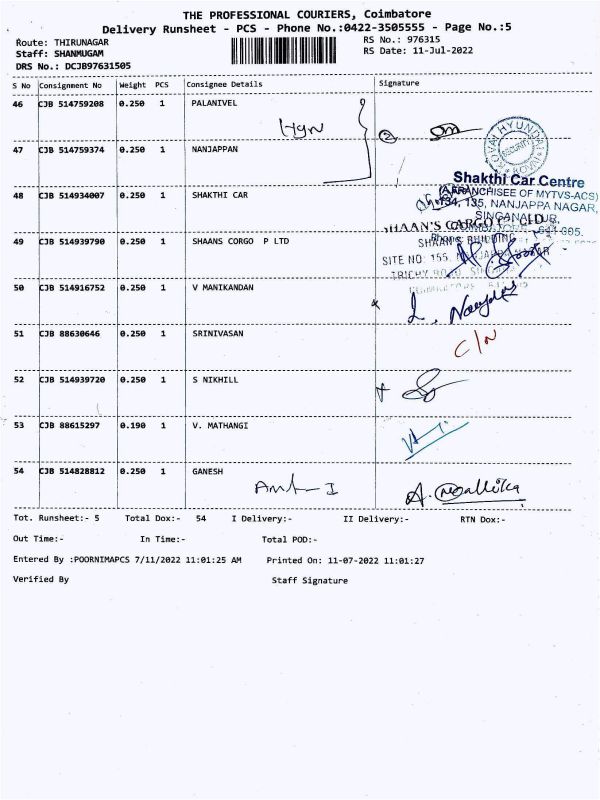 THE PROFESSIONAL COURIERS, Coimbatore
Delivery Runsheet - PCS - Phone No.:0422-3505555 - Page No.:5
Route: THIRUNAGAR
RS No.: 976315
Staff: SHANMUGAM
RS Date: 11-Jul-2022
DRS No.: DCJB97631505
S No Consignment No Weight PCS Consignee Details Signature
46 CJB 514759208 0.250 1 PALANIVEL
47 CJB 514759374 0.250 1 NANJAPPAN
KOVAI HYUNDAI
SECURITY
Shakthi Car Centre
(A FRANCHISEE OF MYTVS-ACS)
134, 135, NANJAPPA NAGAR,
SINGANALLUR,
48 CJB 514934007 0.250 1 SHAKTHI CAR
SHAAN'S BUILDING
49 CJB 514939790 0.250 1 SHAANS CORGO P LTD
SITE NO: 155,
50 CJB 514916752 0.250 1 V MANIKANDAN
51 CJB 88630646 0.250 1 SRINIVASAN
C/N
52 CJB 514939720 0.250 1 S NIKHILL
53 CJB 88615297 0.190 1 V. MATHANGI
54 CJB 514828812 0.250 1 GANESH
A. Mallika
Tot. Runsheet:- 5 Total Dox:- 54 I Delivery:- II Delivery:- RTN Dox:-
Out Time:- In Time:- Total POD:-
Entered By :POORNIMAPCS 7/11/2022 11:01:25 AM Printed On: 11-07-2022 11:01:27
Verified By Staff Signature